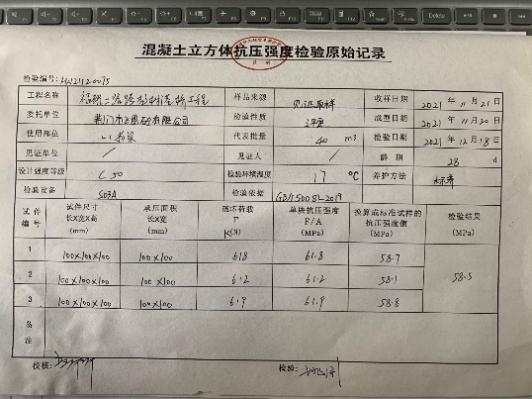 Delete
混凝土立方体抗压强度检验原始记录
检验编号:
工程名称 样品来源 见证取样 收样日期 2021 年 11 月 21 日
委托单位 检验性质 成型日期 2021 年 11 月 20 日
使用部位 代表批量 40 m3 检验日期 2021 年 12 月 18 日
见证单位 / 见证人 / 龄期 28 d
设计强度等级 C50 检验环境温度 17 ℃ 养护方法 标养
检验设备 检验依据 GB/T50081-2019
试件编号 试件尺寸 长X宽X高 (mm) 承压面积 长X宽 (mm) 破坏荷载 F 单块抗压强度 F/A (MPa) 换算成标准试样的抗压强度值 (MPa) 检验结果 (MPa)
1 100×100×100 100×100 618 61.8 58.7
2 100×100×100 100×100 612 61.2 58.1 58.5
3 100×100×100 100×100 619 61.9 58.8
备注
校核: 检验: